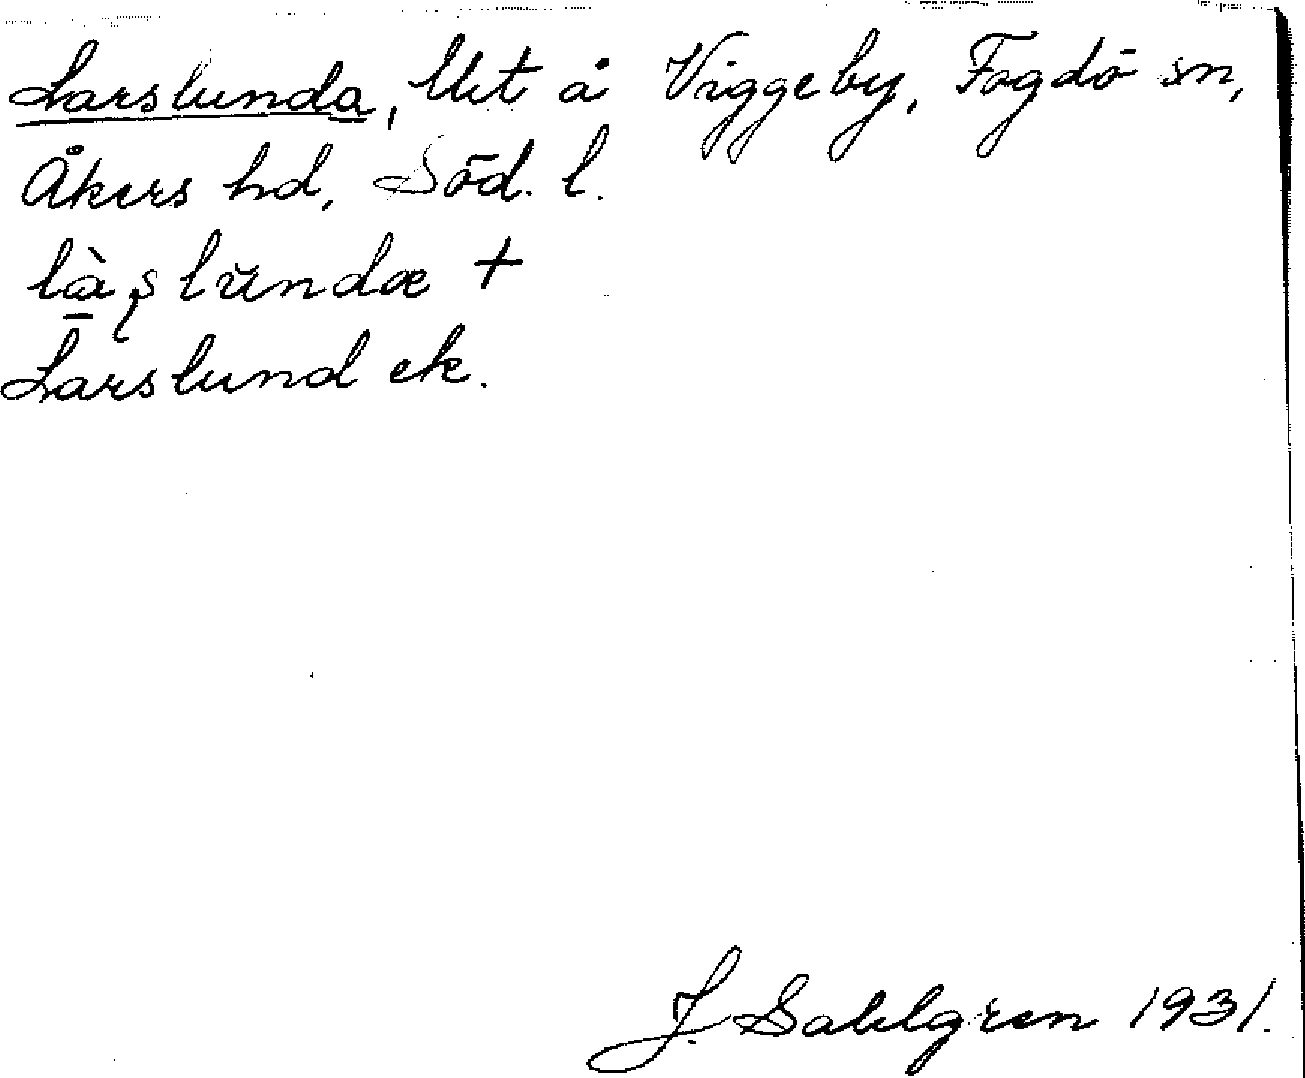 Larslunda, lht å Viggeby, Fogdö sn,
Åkers hd, Söd. l.
là̱ʂlŭndæ +
Larslund ek.
J. Sahlgren 1931.